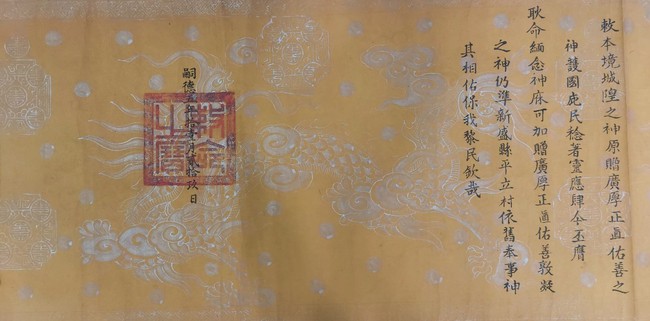 敕本境城隍之神原贈廣厚正直佑善之
神護國庇民稔著靈應肆今丕膺
耿命緬念神庥可加贈廣厚正直佑善敦凝
之神仍準新盛縣平立村依舊奉事神
其相佑保我黎民欽哉
嗣德五年拾壹月貳拾玖日
敕命之寶